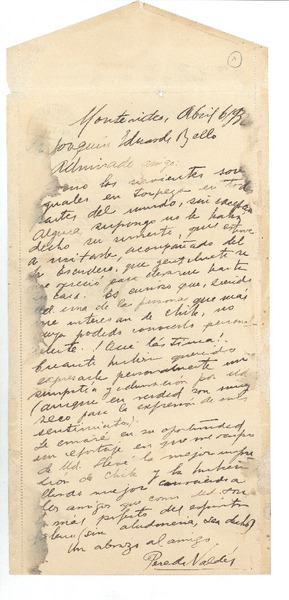 Montevideo, Abril 6/
Joaquín Edwards Bello
Admirado amigo:
como los sirvientes son
iguales en torpeza en todas
partes del mundo, sin excepción
alguna supongo no le habrá
dicho su sirviente, que estuve
a visitarle, acompañado del
Sr. Escudero, que gentilmente se
me ofreció para llevarme hasta
su casa. Es curioso que, siendo
Ud. una de las personas que más
me interesan de Chile, no
haya podido conocerlo personal
mente. ¡Qué lástima!
Cuanto hubiera querido
expresarle personalmente mi
simpatía y admiración por Ud.
(aunque en verdad son muy
seco para la expresión de mis
sentimientos).
Le enviaré en su oportunidad
un reportaje en que me ocupo
de Ud. Llevé la mejor impre
sión de Chile y la hubiera
llevado mejor conociendo a
los amigos que como Ud. son
más perfecto del espíritu
(sin adulonería, sea dicho)
Un abrazo al amigo.
Pereda Valdés